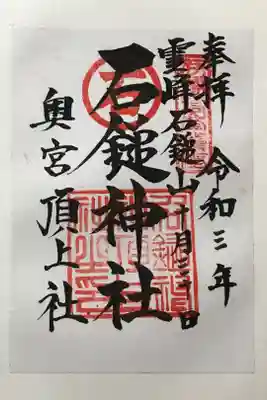 奉拝 令和三年
霊峰石鎚山 十月三十日
石鎚神社
奥宮 頂上社
石